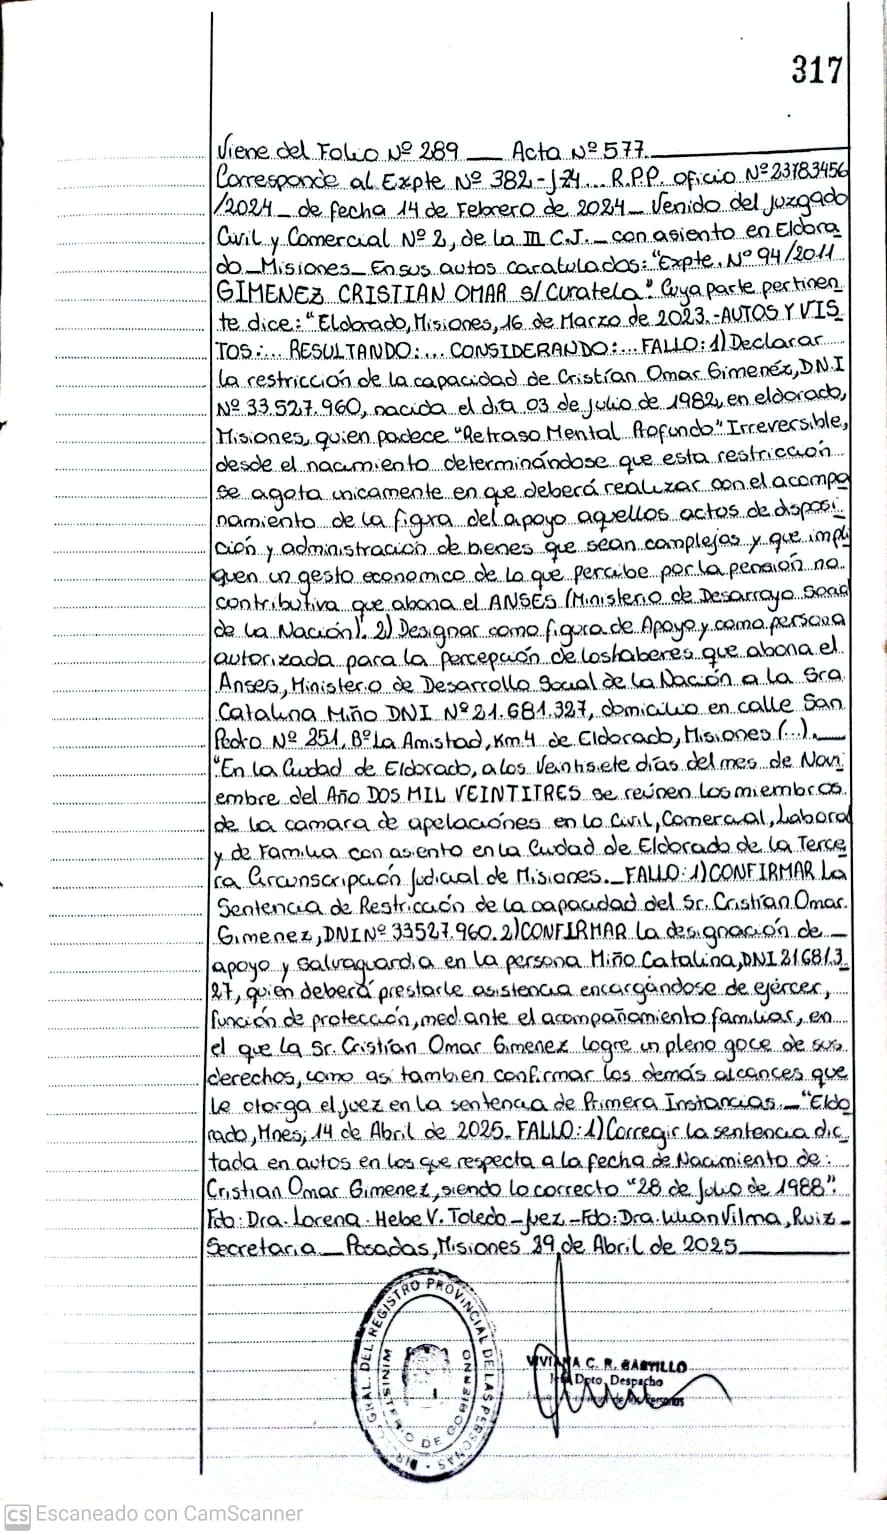 317
Viene del Folio Nº 289 __ Acta Nº 577.
Corresponde al Expte Nº 382-J-24... R.P.P. oficio Nº 23783456
/2024_ de fecha 14 de Febrero de 2024_ Venido del Juzgado
Civil y Comercial Nº 2, de la III C.J._ con asiento en Eldora
do_Misiones_ En sus autos caratulados: "Expte. Nº 94/2011
GIMENEZ CRISTIAN OMAR s/Curatela". Cuya parte pertinen
te dice: "Eldorado, Misiones, 16 de Marzo de 2023.-AUTOS Y VIS
TOS:... RESULTANDO:... CONSIDERANDO:... FALLO: 1) Declarar
la restricción de la capacidad de Cristían Omar Gimenéz, D.N.I
Nº 33.527.960, nacida el día 03 de Julio de 1982, en eldorado,
Misiones, quien padece "Retraso Mental Profundo" Irreversible,
desde el nacimiento determinándose que esta restricción
se agota unicamente en que deberá realizar con el acompa
namiento de la figra del apoyo aquellos actos de disposi
ción y administración de bienes que sean complejas y que impli
quen un gesto economico de lo que percibe por la pensión no
contributiva que abona el ANSES (Ministerio de Desarrayo Social
de la Nación). 2) Designar como figura de Apoyo y como persona
autorizada para la percepción de los haberes que abona el
Anses, Ministerio de Desarrollo Social de la Nación a la Sra
Catalina Miño DNI Nº 21.681.327, domicilio en calle San
Pedro Nº 251, Bº La Amistad, Km.4 de Eldorado, Misiones (...).__
"En la Ciudad de Eldorado, a los Veintisiete días del mes de Novi
embre del Año DOS MIL VEINTITRES se reúnen los miembros
de la camara de apelaciónes en lo Civil, Comercial, Laboral
y de Familia con asiento en la Ciudad de Eldorado de la Terce
ra Circunscripción Judicial de Misiones._ FALLO: 1) CONFIRMAR La
Sentencia de Restricción de la capacidad del Sr. Cristian Omar.
Gimenez, DNI Nº 33527.960. 2) CONFIRMAR la designación de _
apoyo y salvaguardia en la persona Miño Catalina, DNI 216813
27, quien deberá prestarle asistencia encargándose de ejércer,
función de protección, mediante el acompañamiento familiar, en
el que la Sr. Cristían Omar Gimenez logre un pleno goce de sus
derechos, como asi tambien confirmar los demás alcances que
le otorga el juez en la sentencia de Primera Instancias._ "Eldo
rado, Mnes; 14 de Abril de 2025. FALLO: 1) Corregir la sentencia dic
tada en autos en los que respecta a la fecha de Nacimiento de:
Cristian Omar Gimenez, siendo lo correcto "28 de Julio de 1988".
Fdo: Dra. Lorena Hebe V. Toledo_Juez_Fdo: Dra. Vilma, Ruiz_
Secretaria__ Posadas, Misiones 29 de Abril de 2025
DIR. GRAL. DEL REGISTRO PROVINCIAL DE LAS PERSONAS
MINISTERIO DE GOBIERNO
VIVIANA C. R. CASTILLO
Jefa Dpto. Despacho
de las Personas
CS Escaneado con CamScanner